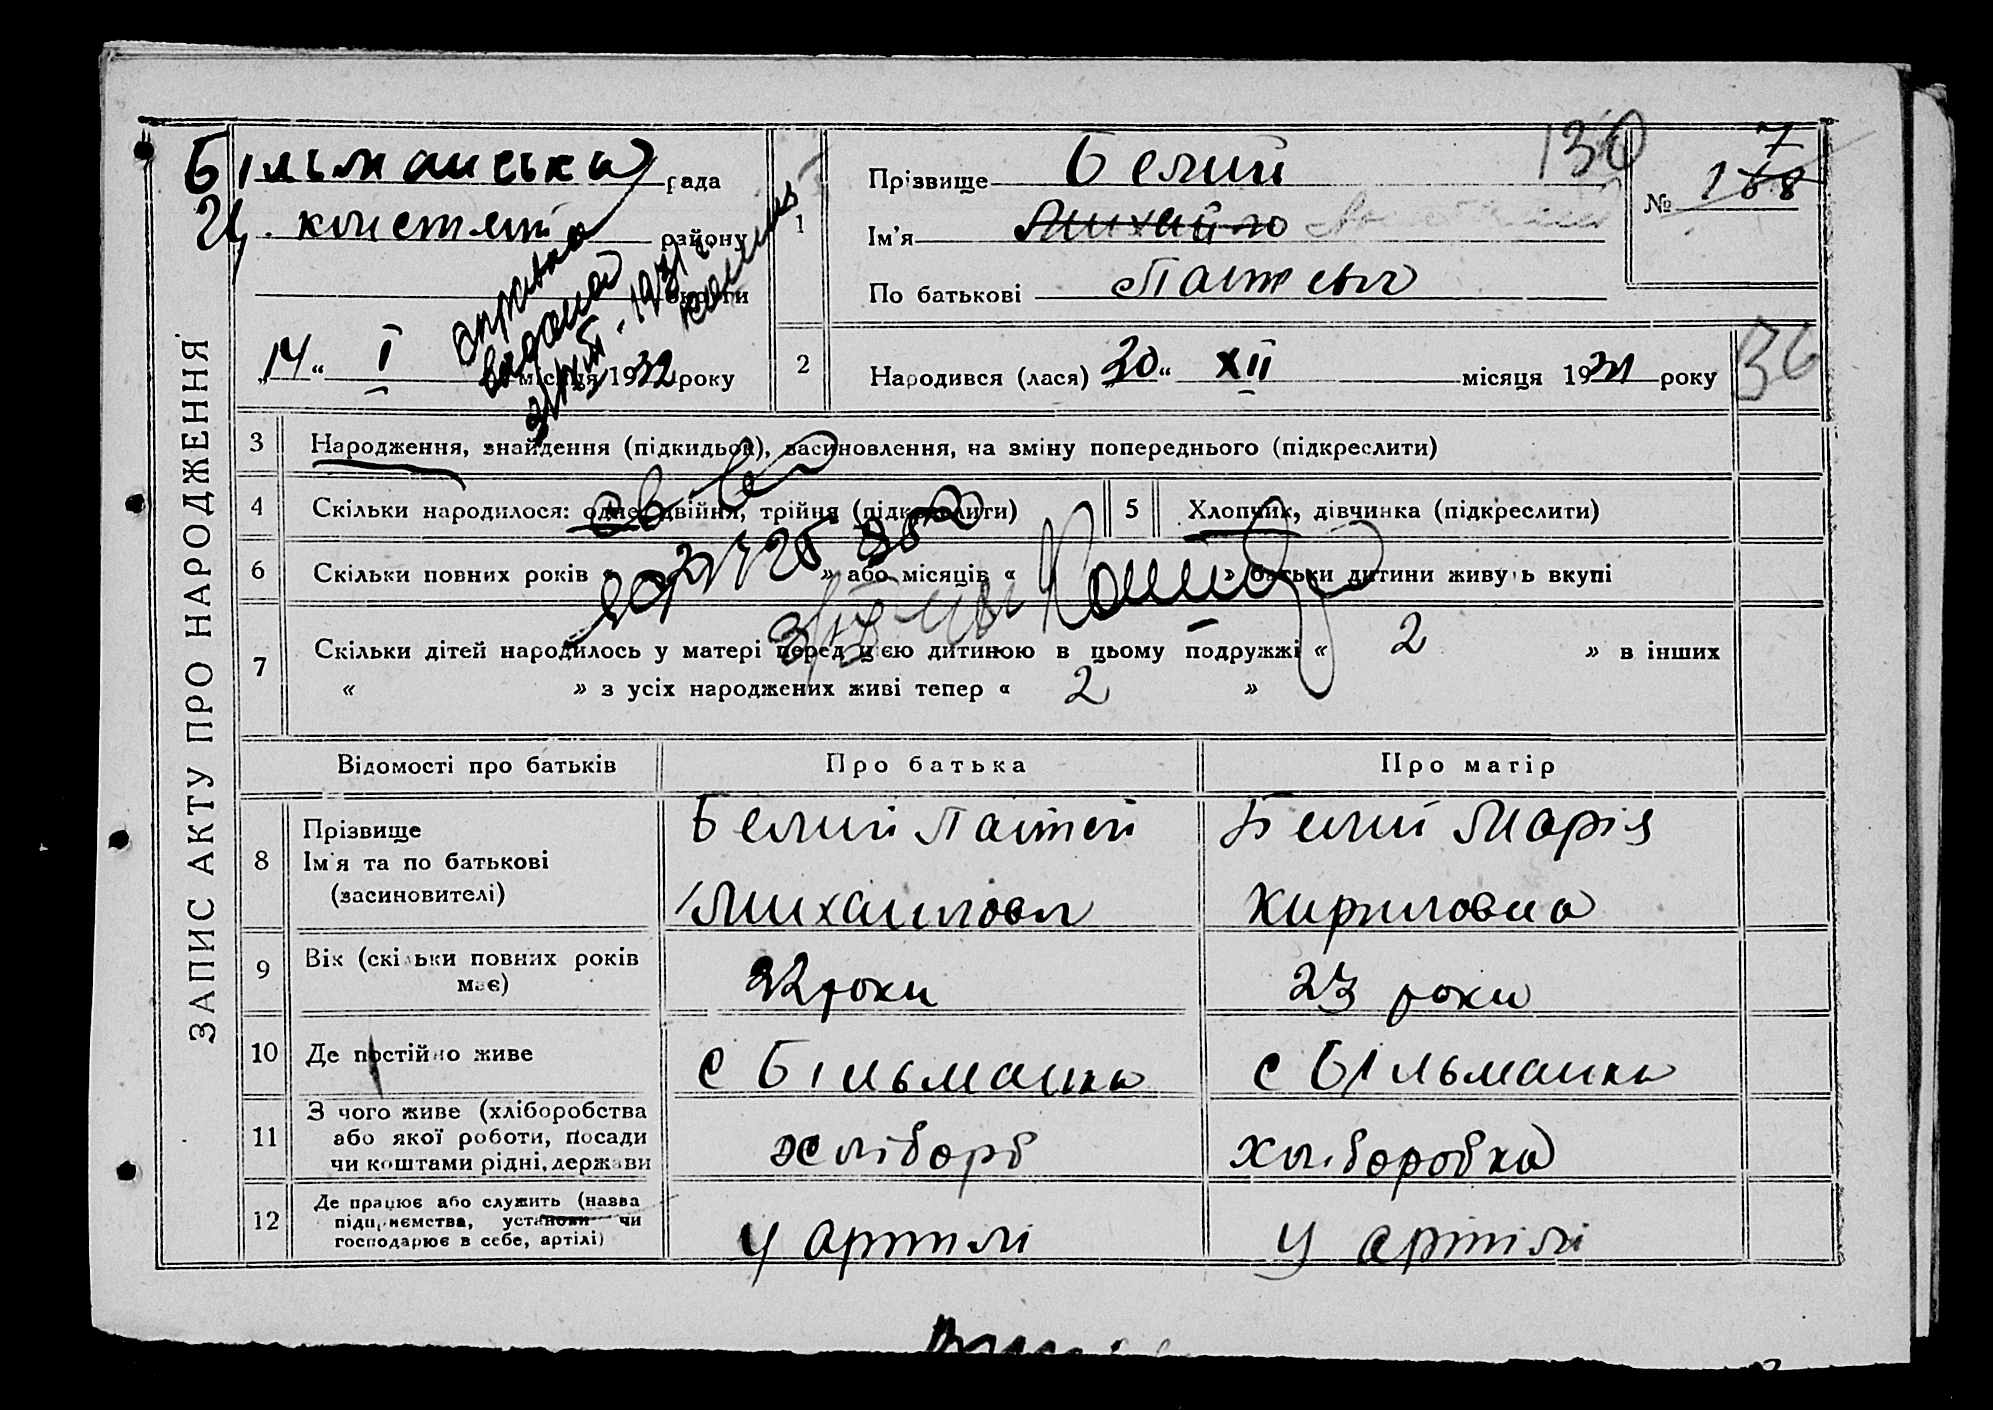 ЗАПИС АКТУ ПРО НАРОДЖЕННЯ
Більманська рада
Ц. констянт району
округи
„14“ I місяця 1932 року
справка
видана
1 Прізвище Белий
Ім'я Михайло
По батькові Пантеыч
130
№ 168 7
2 Народився (лася) „30“ XII місяця 1931 року
36
3 Народження, знайдення (підкидьок), засиновлення, на зміну попереднього (підкреслити)
4 Скільки народилося: одне, двійня, трійня (підкреслити)
5 Хлопчик, дівчинка (підкреслити)
6 Скільки повних років « » або місяців « » батьки дитини живуть вкупі
7 Скільки дітей народилось у матері перед цією дитиною в цьому подружжі « 2 » в інших
« » з усіх народжених живі тепер « 2 »
Відомості про батьків Про батька Про матір
8 Прізвище
Ім'я та по батькові
(засиновителі)
Белий Пантей
Михаилови
Белий Марія
Кириловна
9 Вік (скільки повних років
має)
32 роки
23 роки
10 Де постійно живе
с Більманка
с Більманка
11 З чого живе (хліборобства
або якої роботи, посади
чи коштами рідні, держави
хлібороб
хліборобка
12 Де працює або служить (назва
підприємства, установи чи
господарює в себе, артілі)
у артілі
у артілі